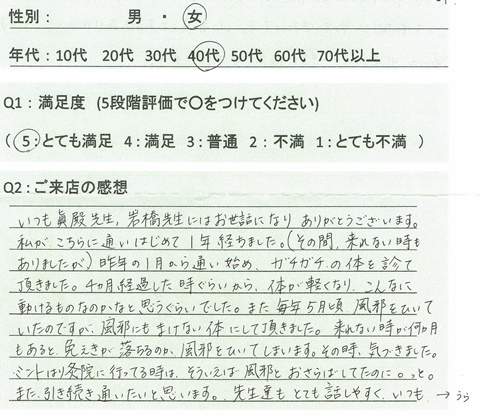 性別： 男 ・ 女
年代：10代 20代 30代 40代 50代 60代 70代以上
Q1：満足度 (5段階評価で〇をつけてください)
( 5：とても満足 4：満足 3：普通 2：不満 1：とても不満 )
Q2：ご来店の感想
いつも眞殿先生，岩橋先生にはお世話になり ありがとうございます。
私が こちらに通いはじめて 1年 経ちました。(その間，来れない時も
ありましたが) 昨年の1月から通い始め、ガチガチの体を診て
頂きました。4ヵ月経過した時ぐらいから、体が軽くなり、こんなに
動けるものなのかなと思うぐらいでした。また 毎年5月頃 風邪をひいて
いたのですが、風邪にもまけない体にして頂きました。来れない時が何か月
もあると、免えきが落ちるのか、風邪をひいてしまいます。その時、気づきました。
ミントはり灸院に行ってる時は、そういえば風邪とおさらばしてたのに。っと。
また、引き続き通いたいと思います。先生達も とても話しやすく、いつも → うら